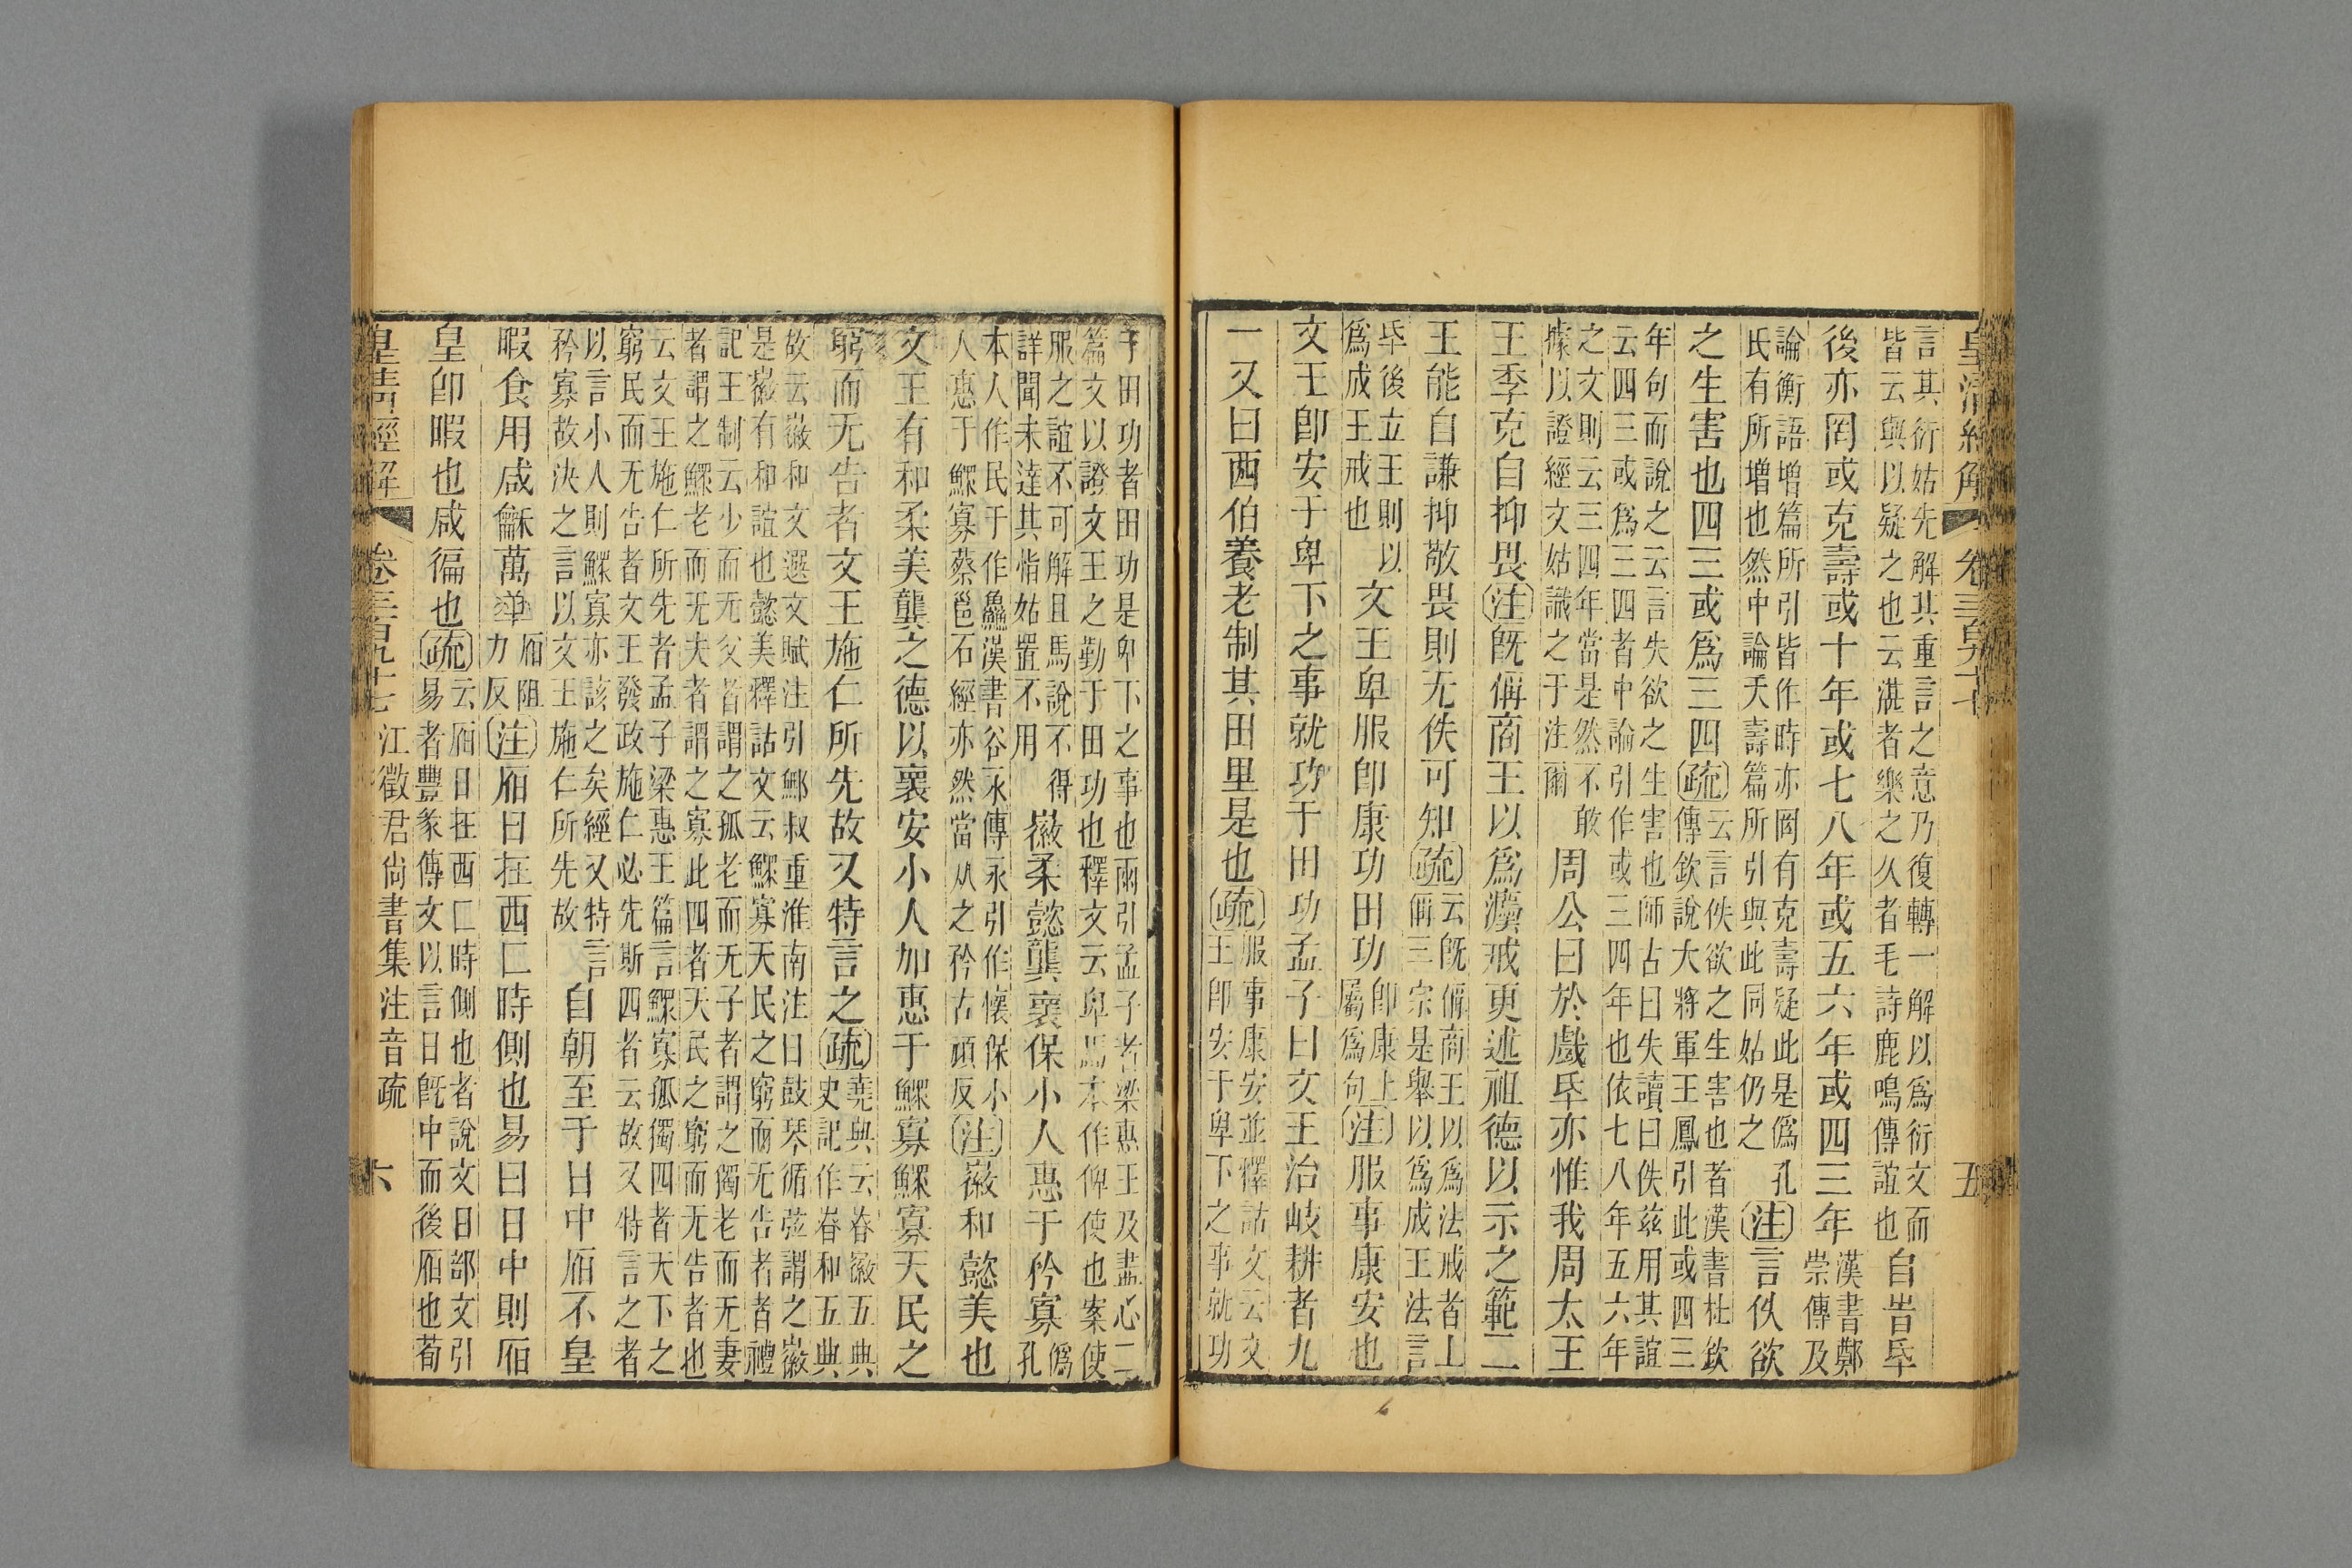 皇清經解 卷三百九十七 五
言其衍姑先解其重言之意乃復轉一解以爲衍文而
皆云與以疑之也云湛者樂之久者毛詩鹿鳴傳誼也
自旹氒
後亦罔或克壽或十年或七八年或五六年或四三年
漢書鄭
崇傳及
論衡語增篇所引皆作時亦罔有克壽疑此是僞孔
氏有所增也然中論夭壽篇所引與此同姑仍之
注言佚欲
之生害也四三或爲三四疏
云言佚欲之生害也者漢書杜欽
傳欽說大將軍王鳳引此或四三
年句而說之云言失欲之生害也師古曰失讀曰佚兹用其誼
云四三或爲三四者中論引作或三四年也依七八年五六年
之文則云三四年當是然不敢
據以證經文姑識之于注爾
周公曰於戲氒亦惟我周太王
王季克自抑畏注旣偁商王以爲灋戒更述祖德以示之範二
王能自謙抑敬畏則无佚可知疏
云旣偁商王以爲法戒者上
偁三宗是舉以爲成王法言
氒後立王則以
爲成王戒也
文王卑服卽康功田功
卽康上
屬爲句
注服事康安也
文王卽安于卑下之事就功于田功孟子曰文王治岐耕者九
一又曰西伯養老制其田里是也疏
服事康安並釋詁文云文
王卽安于卑下之事就功
于田功者田功是卑下之事也兩引孟子者梁惠王及盡心二
篇文以證文王之勤于田功也釋文云卑馬本作俾使也案使
服之誼不可解且馬說不得
詳聞未達其恉姑置不用
徽柔懿龔褱保小人惠于矜寡
僞
孔
本人作民于作鱻漢書谷永傳永引作懷保小
人惠于鰥寡蔡邕石經亦然當从之矜古頑反
注徽和懿美也
文王有和柔美龔之德以褱安小人加惠于鰥寡鰥寡天民之
窮而无告者文王施仁所先故又特言之疏
堯典云眘徽五典
史記作眘和五典
故云徽和文選文賦注引鄦叔重淮南注曰鼓琴循弦謂之徽
是徽有和誼也懿美釋詁文云鰥寡天民之窮而无告者者禮
記王制云少而无父者謂之孤老而无子者謂之獨老而无妻
者謂之鰥老而无夫者謂之寡此四者天民之窮而无告者也
云文王施仁所先者孟子梁惠王篇言鰥寡孤獨四者天下之
窮民而无告者文王發政施仁必先斯四者云故又特言之者
以言小人則鰥寡亦該之矣經又特言
矜寡故決之言以文王施仁所先故
自朝至于日中𣅳不皇
暇食用咸龢萬𠦒
𣅳阻
力反
注𣅳日在西匚時側也易曰日中則𣅳
皇卽暇也咸徧也疏
云𣅳日在西匚時側也者說文日部文引
易者豐彖傳文以言日旣中而後𣅳也荀
皇清經解 卷三百九十七 江徵君尙書集注音疏 六